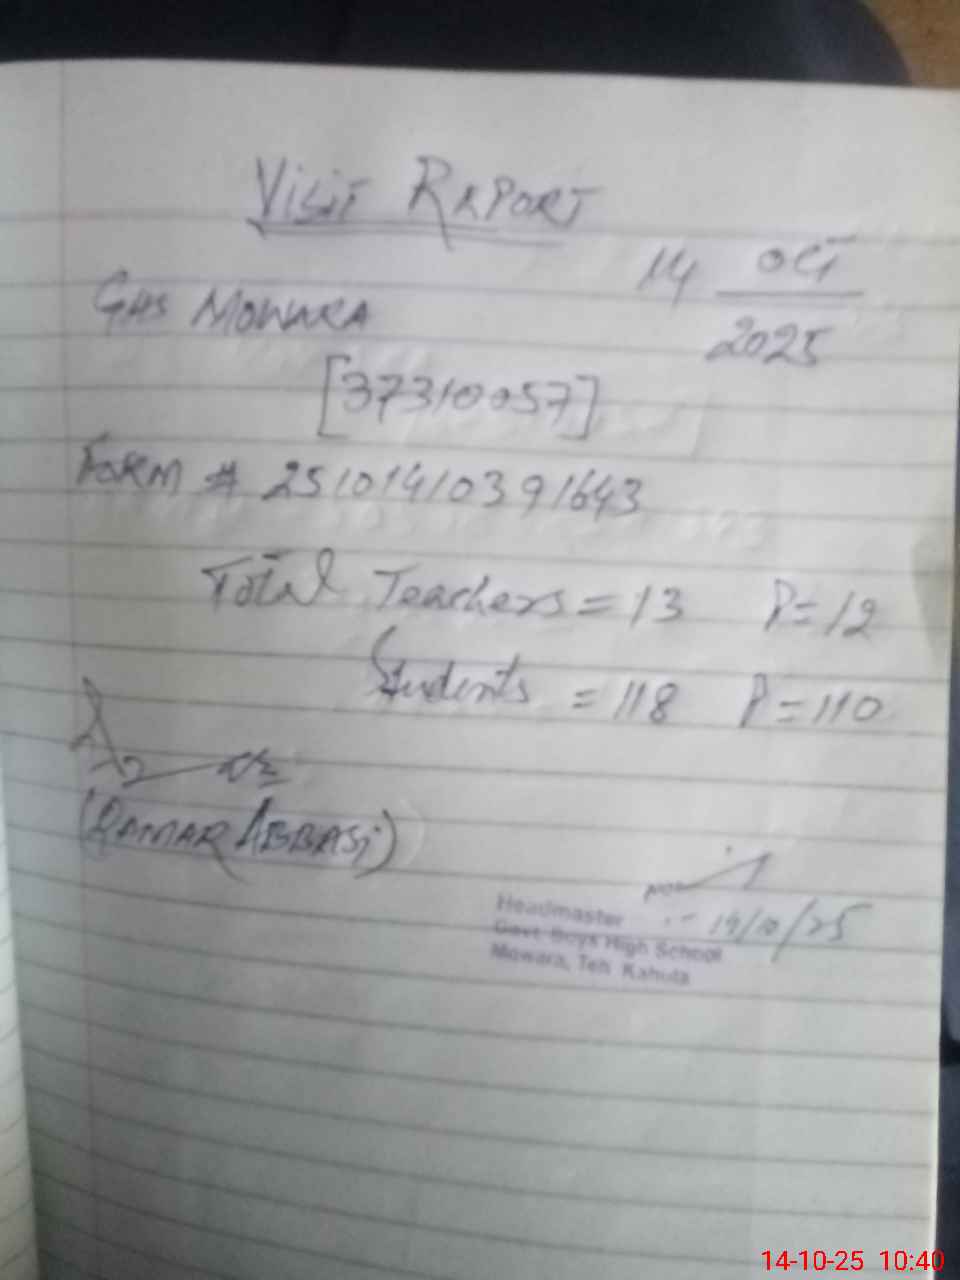 VISIT REPORT
14 OCT
2025
GHS MOWARA
[37310057]
FORM # 25101410391643
Total Teachers = 13 P = 12
Students = 118 P = 110
(QAMAR ABBASI)
14/10/25
Headmaster
Govt Boys High School
Mowara, Teh Kahuta
14-10-25 10:40